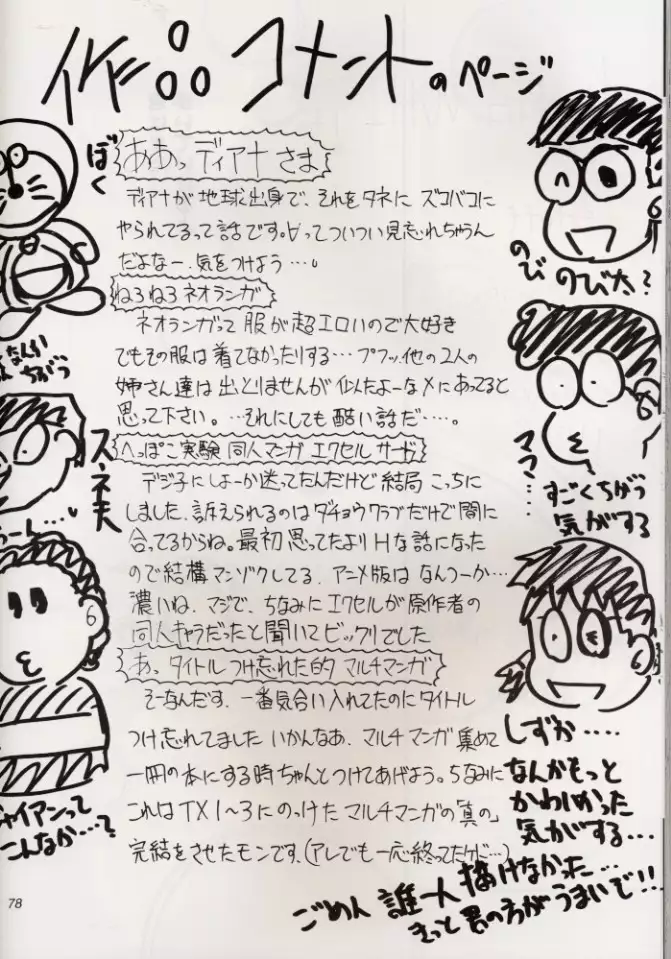 作品コメントのページ
ああっディアナさま
ディアナが地球出身で、それをタネにズコバコに
やられてるって話です。∀ってついつい見忘れちゃうん
だよなー、気をつけよう…。
ねろねろネオランガ
ネオランガって服が超エロいので大好き
でもその服は着てなかったりする…プフッ、他の2人の
姉さん達は出とりませんが似たよーなメにあってると
思って下さい。…それにしても酷い話だ…。
へっぽこ実験同人マンガエクセルサード
デジ子にしよーか迷ってたんだけど結局こっちに
しました、訴えられるのはダチョウクラブだけで間に
合ってるからね。最初思ってたよりHな話になった
ので結構マンゾクしてる、アニメ版はなんつーか…
濃いね、マジで、ちなみにエクセルが原作者の
同人キャラだったと聞いてビックリでした
あ、タイトルつけ忘れた的マルチマンガ
そーなんだす、一番気合い入れてたのにタイトル
つけ忘れてましたいかんなあ、マルチマンガ集めて
一冊の本にする時ちゃんとつけてあげよう。ちなみに
これはTX1~3にのっけたマルチマンガの「真の」
完結をさせたモンです、(アレでも一応終ってたけど…)
ぼく
なんか
ちがう
スネ夫
うーん…
ジャイアンって
こんなか…?
のび のび太?
ママ…
すごくちがう
気がする
しずか….
なんかもっと
かわいかった
気がする…
ごめん 誰一人描けなかった…
きっと君の方がうまいで!!
78